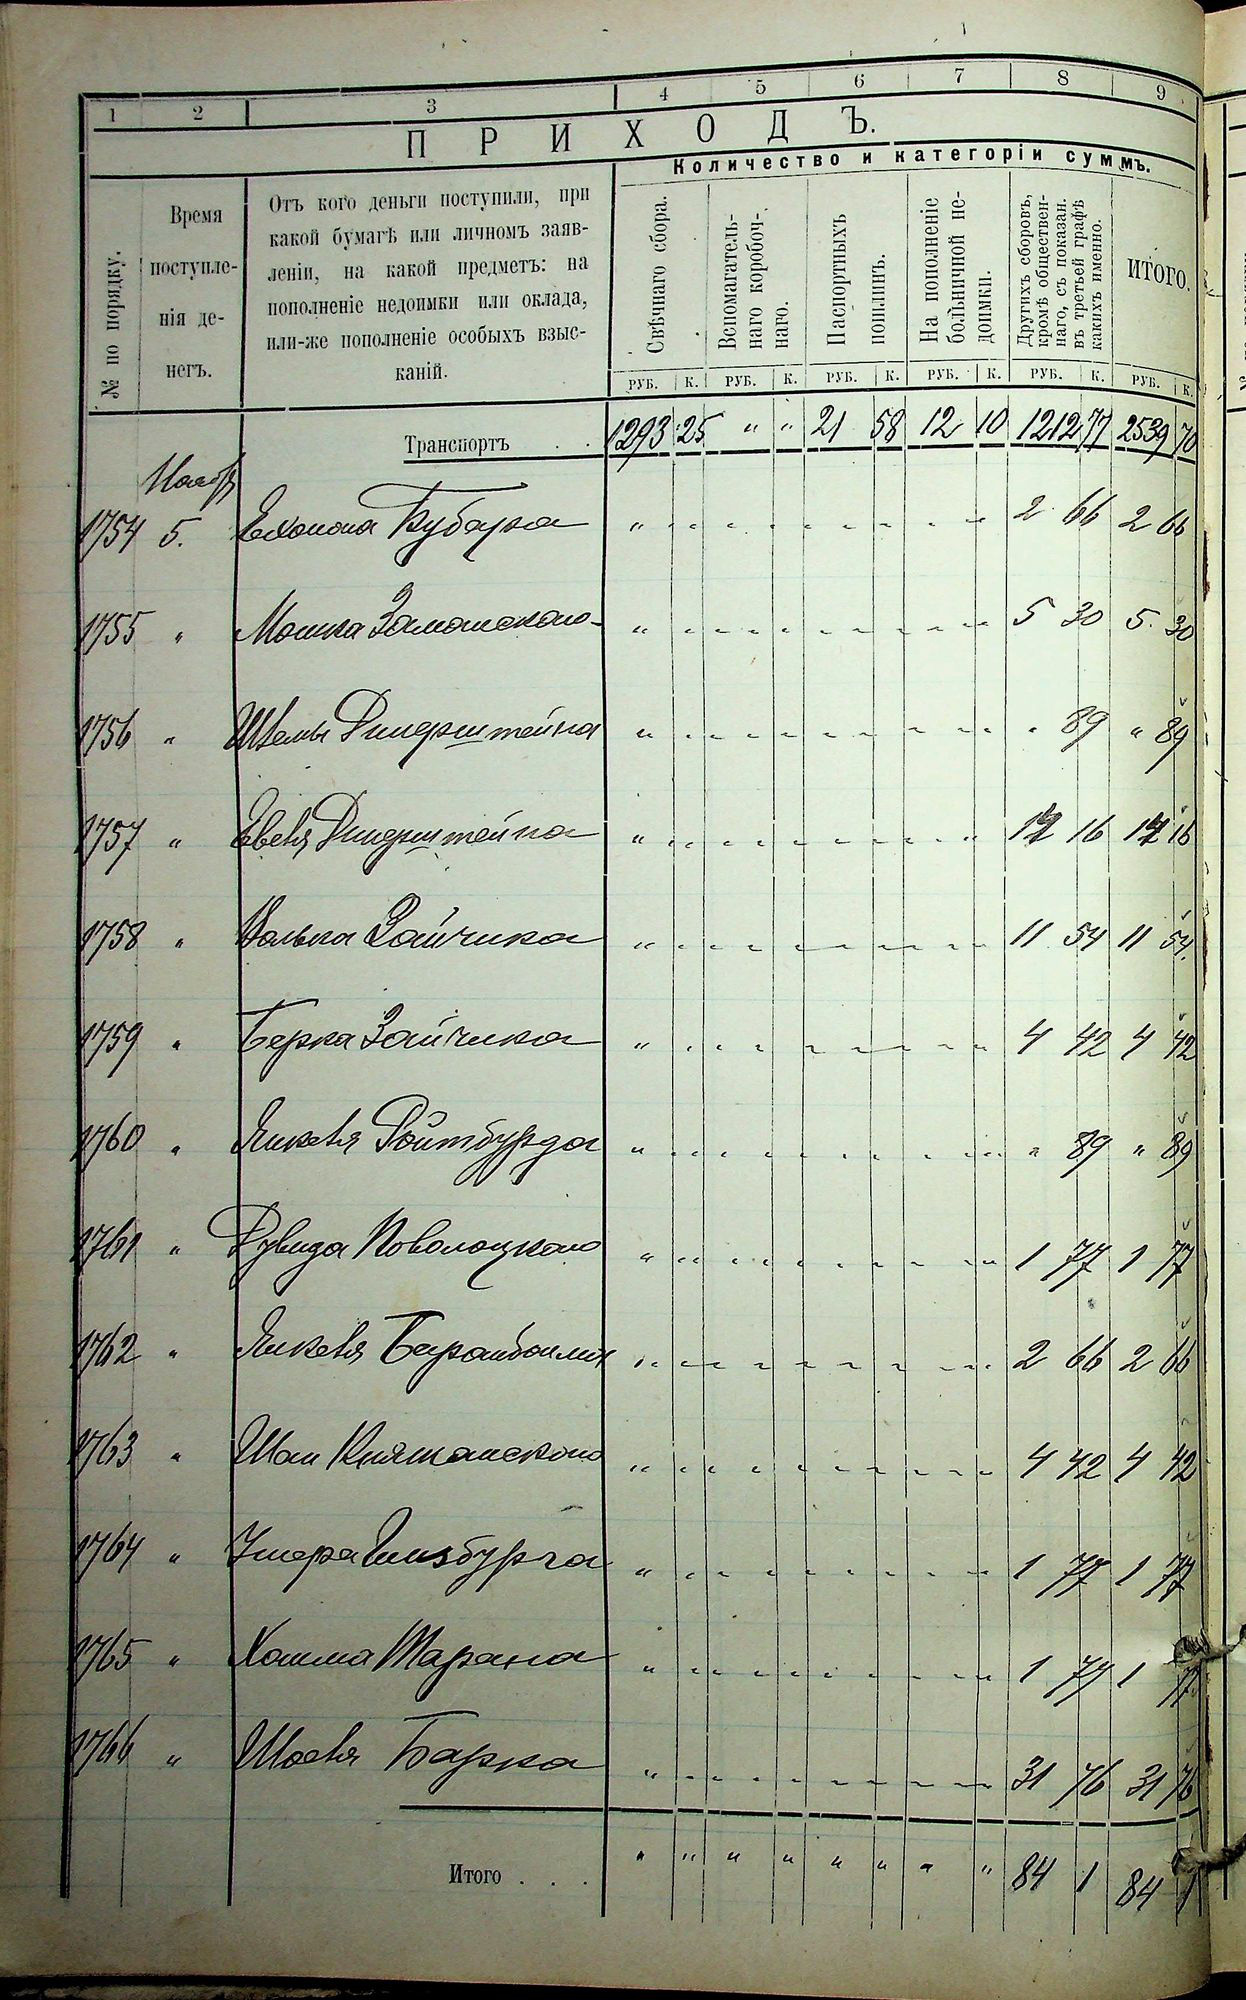 1 2 3 4 5 6 7 8 9
ПРИХОДЪ.
Количество и категоріи суммъ.
№ по порядку.
Время
поступле-
нія де-
негъ.
Отъ кого деньги поступили, при
какой бумагѣ или личномъ заяв-
леніи, на какой предметъ: на
пополненіе недоимки или оклада,
или-же пополненіе особыхъ взыс-
каній.
Свѣчнаго сбора.
Вспомагатель-
наго коробоч-
наго.
Паспортныхъ
пошлинъ.
На пополненіе
больничной не-
доимки.
Другихъ сборовъ,
кромѣ обществен-
наго, съ показан.
въ третьей графѣ
какихъ именно.
ИТОГО.
РУБ. К. РУБ. К. РУБ. К. РУБ. К. РУБ. К. РУБ. К.
Транспортъ . . 1293 25 " " 21 58 12 10 1212 77 2539 70
Ноября
1754 5. Бубара " 2 66 2 66
1755 " Мошка Заманского " 5 30 5 30
1756 " " " 89 " 89
1757 " " 16 16
1758 " Волька Зайчика " 11 54 11 54
1759 " Берка Зайчика " 4 42 4 42
1760 " Янкеля Ройтбурда " " 89 " 89
1761 " Дувида Поволоцкого " 1 77 1 77
1762 " Янкеля " 2 66 2 66
1763 " " 4 42 4 42
1764 " Ушера Гинзбурга " 1 77 1 77
1765 " Тарана " 1 77 1 77
1766 " Барка " 31 76 31 76
Итого . . . " " " " " " " " 84 1 84 1